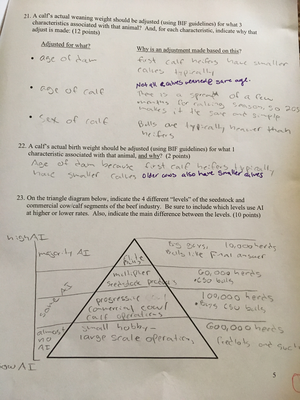 21. A calf's actual weaning weight should be adjusted (using BIF guidelines) for what 3
characteristics associated with that animal? And, for each characteristic, indicate why that
adjust is made: (12 points)
Adjusted for what?
Why is an adjustment made based on this?
• age of dam
first calf heifers have smaller
calves typically
• age of calf
Not all calves weaned same age.
There is a spread of a few
months for calving season so 205
makes it the same and simple
• sex of calf
Bulls are typically heavier than
heifers
22. A calf's actual birth weight should be adjusted (using BIF guidelines) for what 1
characteristic associated with that animal, and why? (2 points)
Age of dam because first calf heifers typically
have smaller calves older cows also have smaller calves
23. On the triangle diagram below, indicate the 4 different "levels" of the seedstock and
commercial cow/calf segments of the beef industry. Be sure to include which levels use AI
at higher or lower rates. Also, indicate the main difference between the levels. (10 points)
high AI
majority AI
Elite
Big guys, 10,000 herds
Bulls like Final answer
some AI
multiplier
Seedstock producers
60,000 herds
progressive
commercial cow/
calf operations
100,000 herds
almost
no
AI
small hobby-
large scale operations
600,000 herds
low AI
5